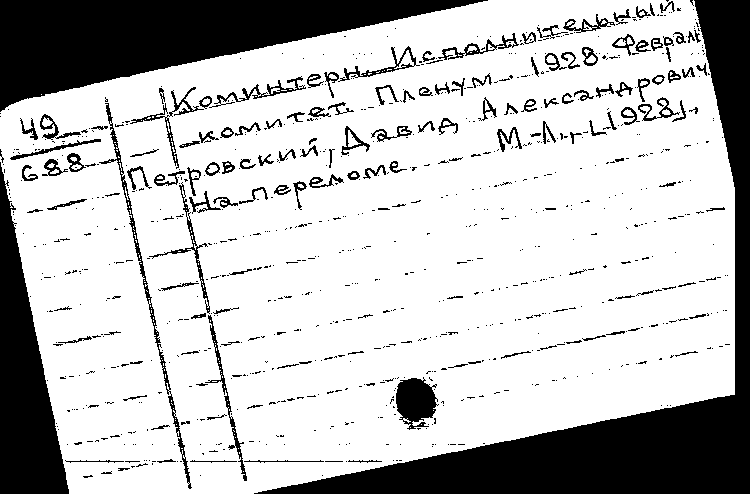 Коминтерн. Исполнительный
комитет. Пленум. 1928. Февраль
49
688
Петровский, Давид Александрович
На переломе. М.-Л., [1928],